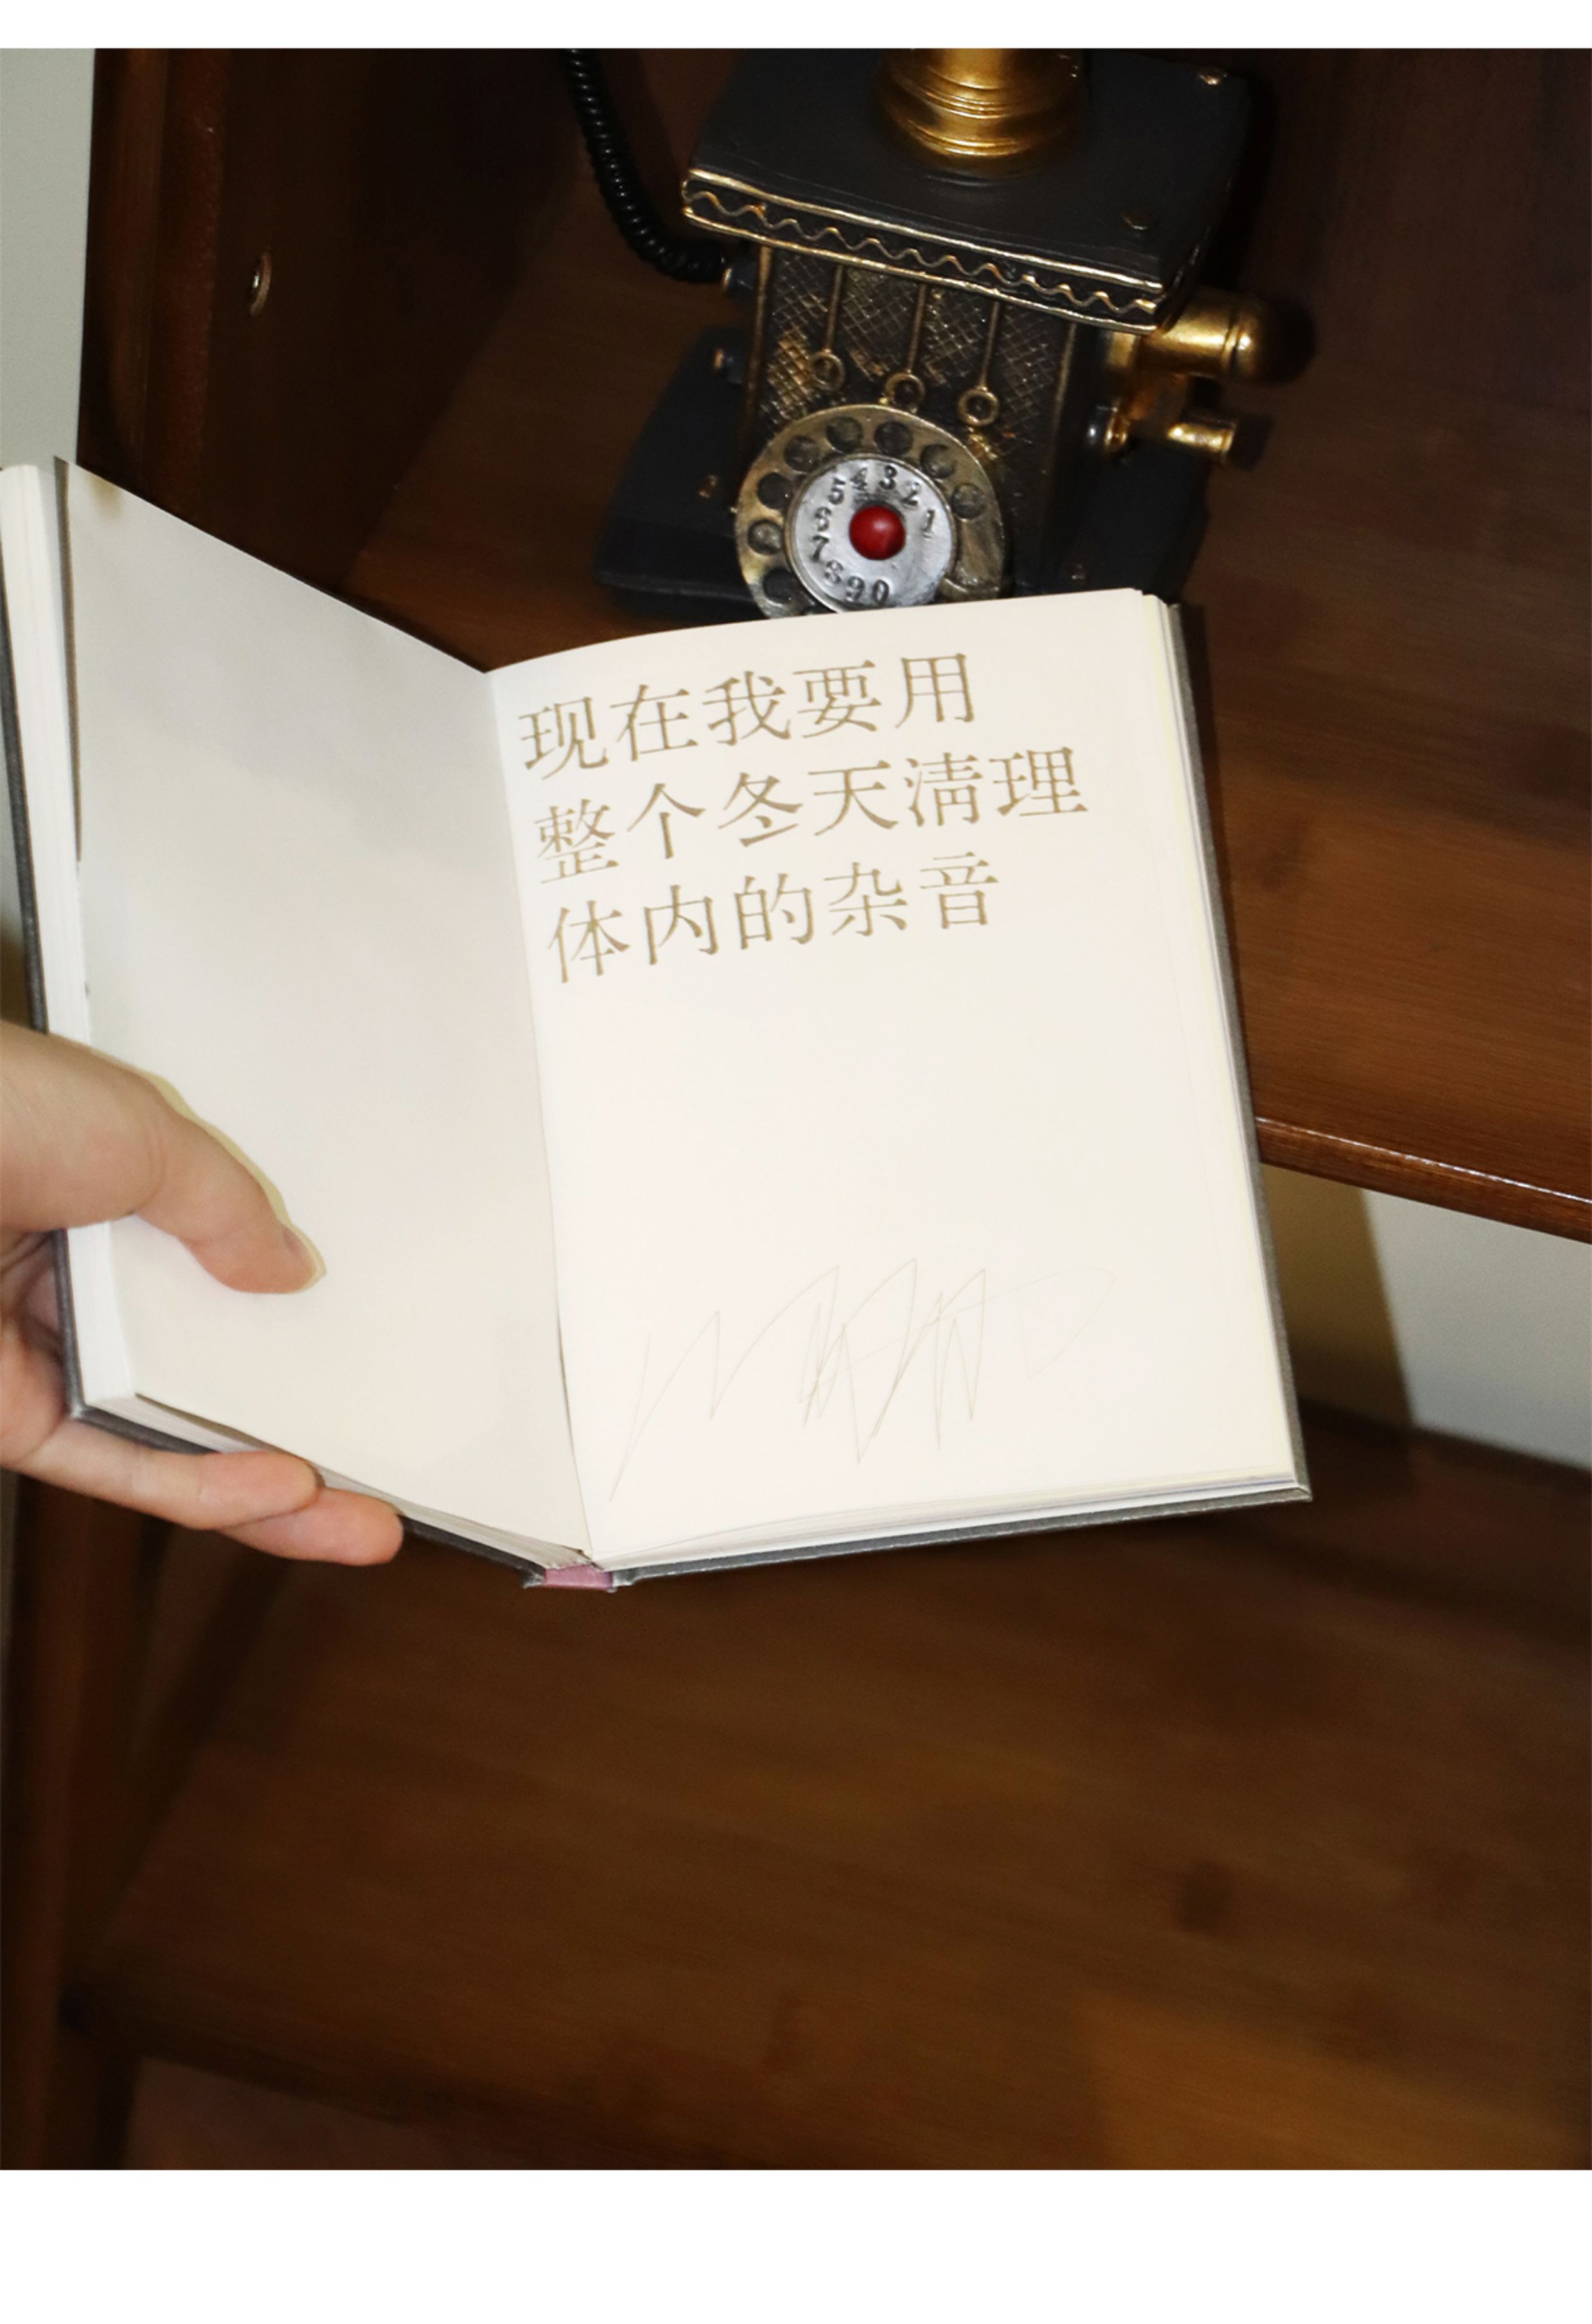 5 4 3 2 1
6 7 8 9 0
现在我要用
整个冬天清理
体内的杂音